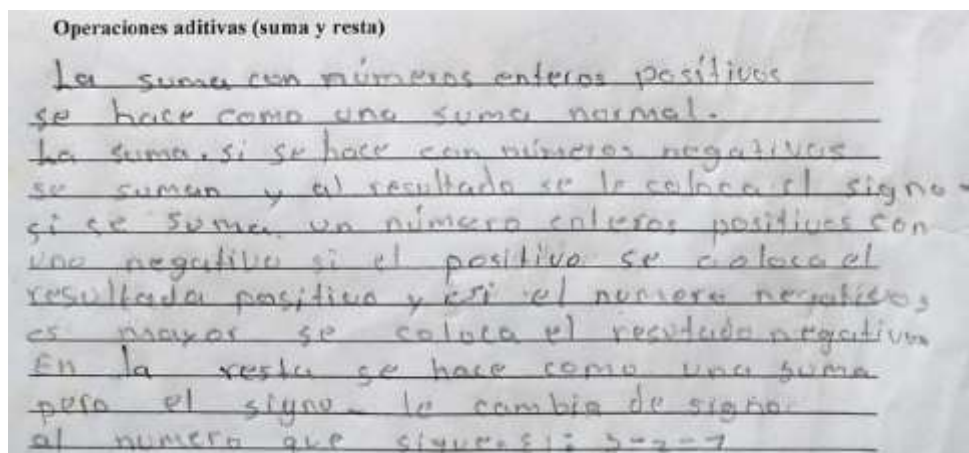 Operaciones aditivas (suma y resta)
La suma con números enteros positivos
se hace como una suma normal.
La suma. si se hace con números negativos
se suman y al resultado se le coloca el signo -
si se suma un número enteros positivos con
uno negativo si el positivo se coloca el
resultada positivo y si el numero negativos
es mayor se coloca el resultado negativo
En la resta se hace como una suma
pero el signo - le cambia de signo
al numero que sigue.